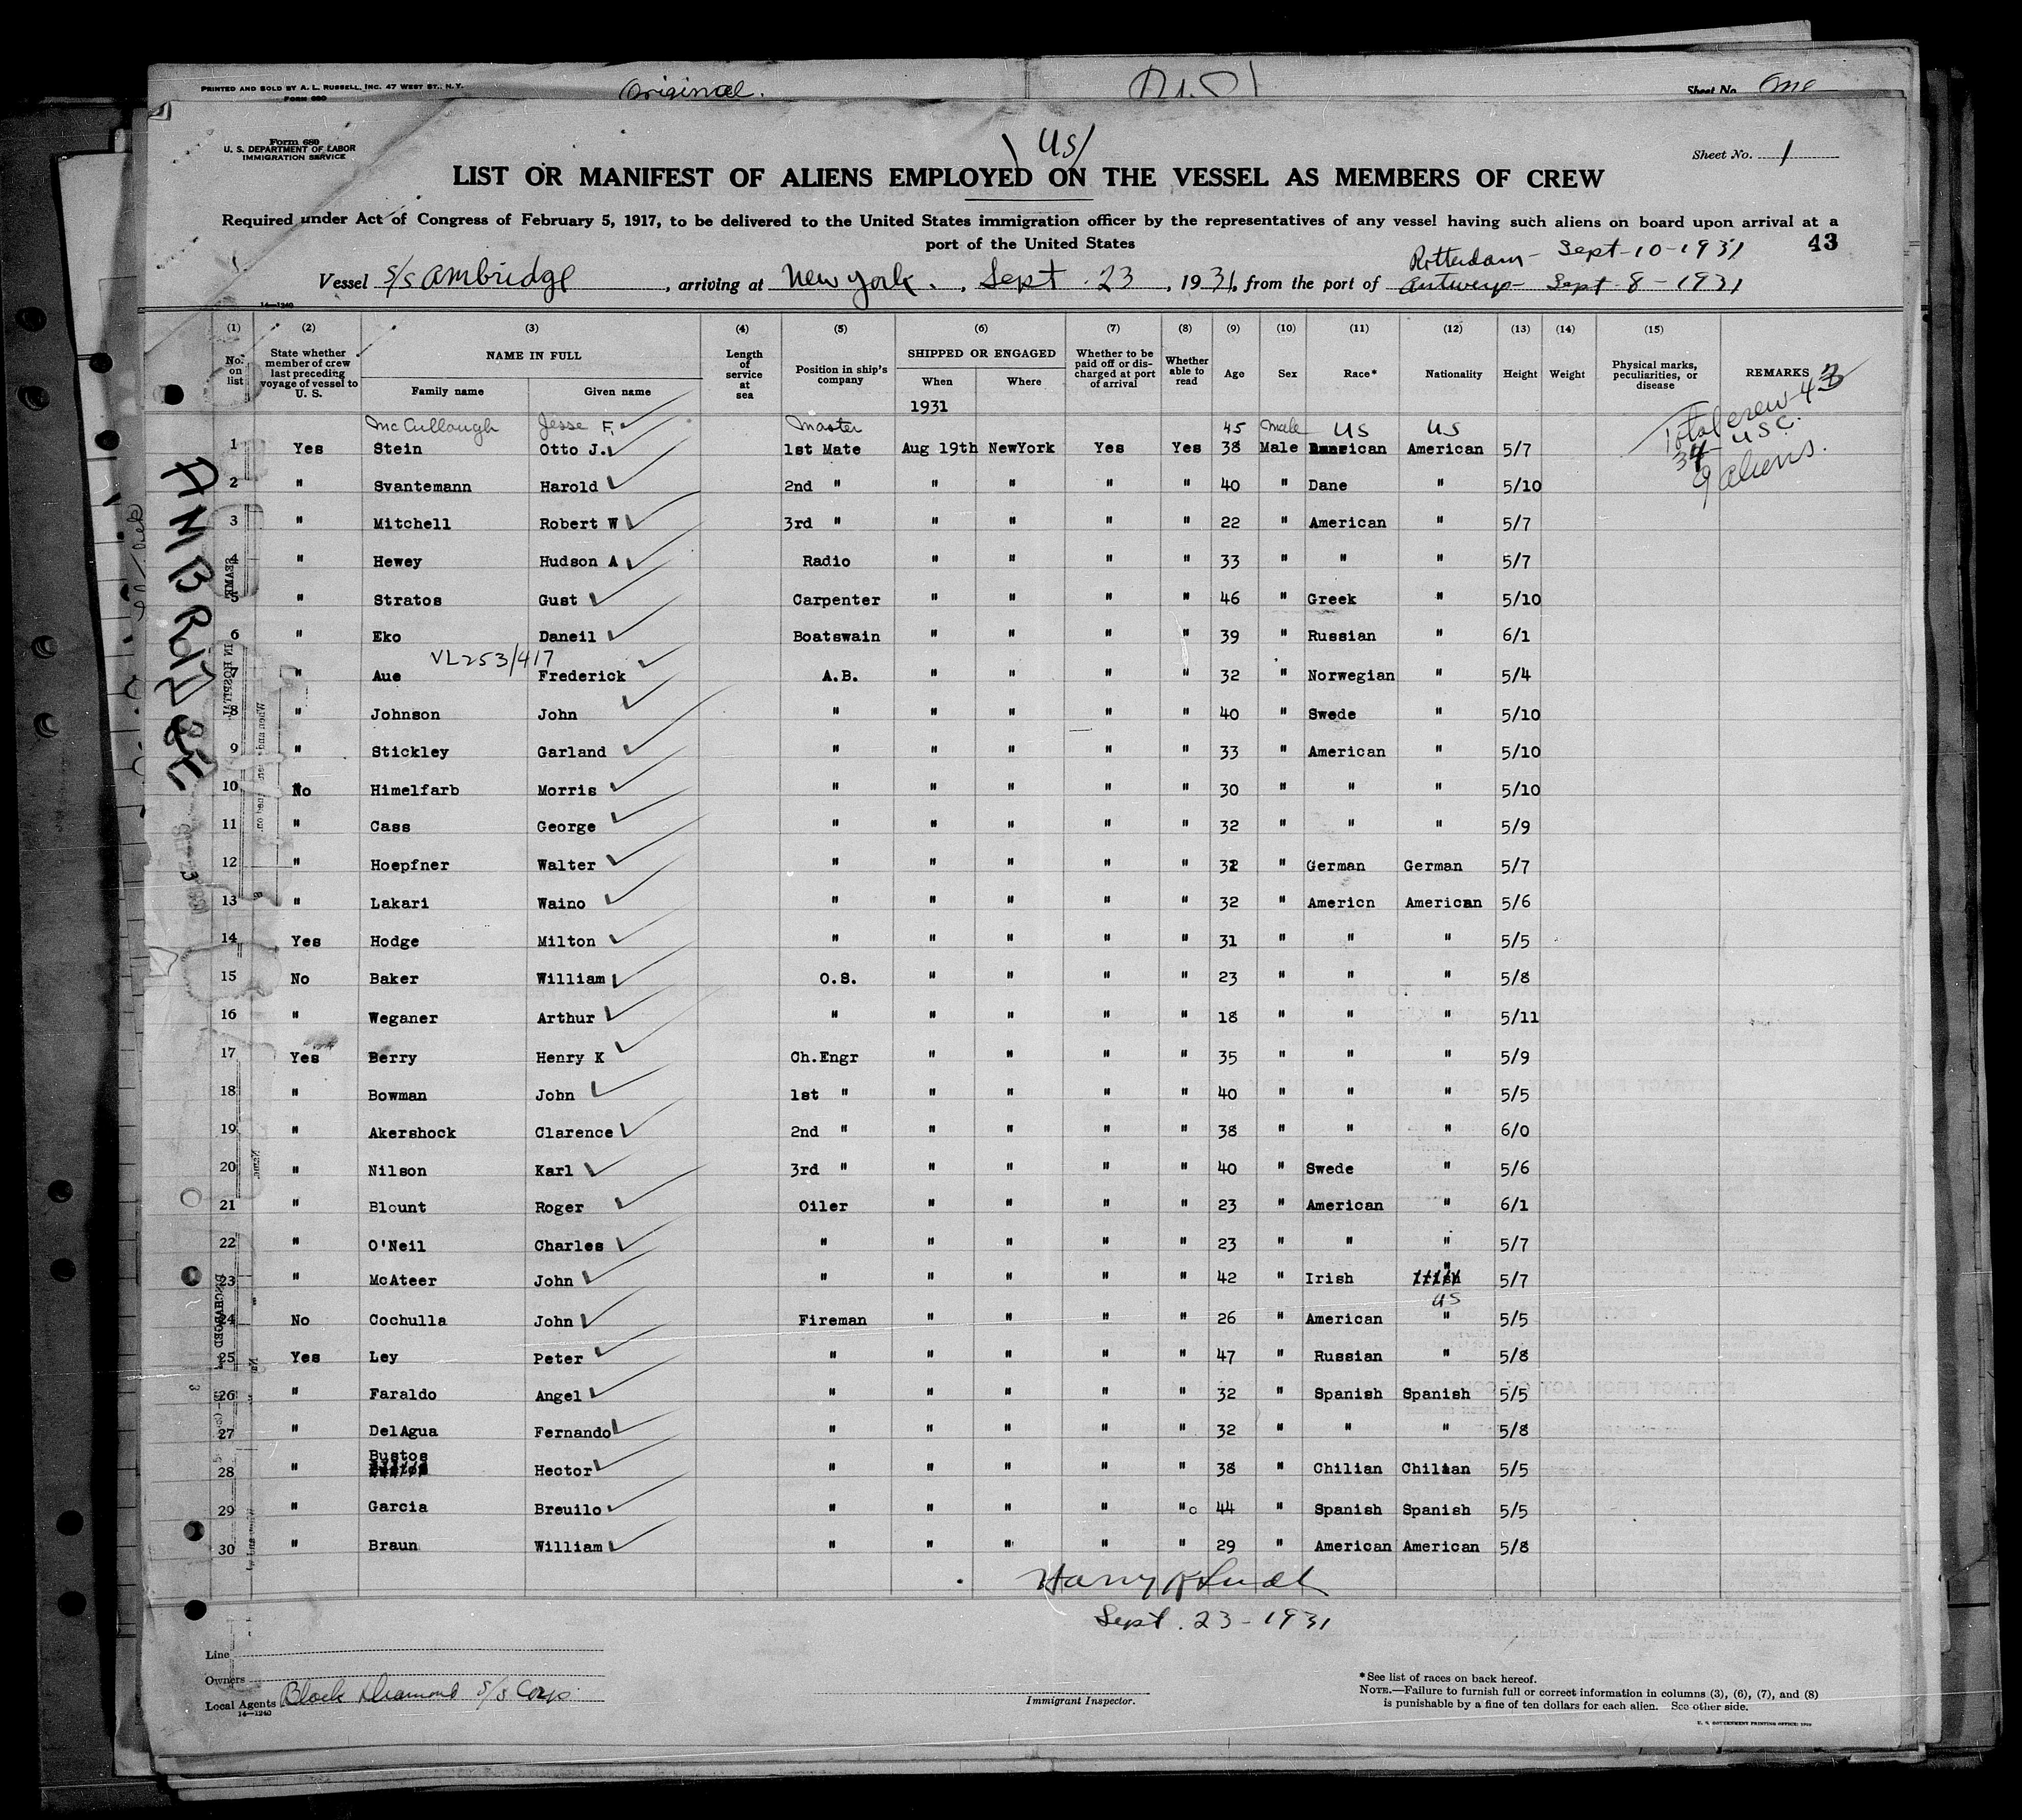 PRINTED AND SOLD BY A. L. RUSSELL, INC. 47 WEST ST., N.Y.
FORM 680
Original.
Sheet No. One
Form 680
U. S. DEPARTMENT OF LABOR
IMMIGRATION SERVICE
US
Sheet No. 1
LIST OR MANIFEST OF ALIENS EMPLOYED ON THE VESSEL AS MEMBERS OF CREW
Required under Act of Congress of February 5, 1917, to be delivered to the United States immigration officer by the representatives of any vessel having such aliens on board upon arrival at a
port of the United States
43
Rotterdam - Sept-10-1931
Vessel S/S Ambridge, arriving at New York., Sept. 23, 1931, from the port of Antwerp- Sept-8-1931
14-1240
(1) (2) (3) (4) (5) (6) (7) (8) (9) (10) (11) (12) (13) (14) (15)
No. on list State whether member of crew last preceding voyage of vessel to U. S. NAME IN FULL Family name Given name Length of service at sea Position in ship's company SHIPPED OR ENGAGED When Where Whether to be paid off or discharged at port of arrival Whether able to read Age Sex Race* Nationality Height Weight Physical marks, peculiarities, or disease REMARKS
1931
McCullough Jesse F. Master 45 Male US US
1 Yes Stein Otto J. 1st Mate Aug 19th NewYork Yes Yes 38 Male American American 5/7
Total crew 43
34 USC.
9 aliens.
2 " Svantemann Harold 2nd " " " " " 40 " Dane " 5/10
3 " Mitchell Robert W 3rd " " " " " 22 " American " 5/7
4 " Hewey Hudson A Radio " " " " 33 " " " 5/7
5 " Stratos Gust Carpenter " " " " 46 " Greek " 5/10
6 " Eko Daneil Boatswain " " " " 39 " Russian " 6/1
VL253/417
7 " Aue Frederick A.B. " " " " 32 " Norwegian " 5/4
8 " Johnson John " " " " " 40 " Swede " 5/10
9 " Stickley Garland " " " " " 33 " American " 5/10
10 No Himelfarb Morris " " " " " 30 " " " 5/10
11 " Cass George " " " " " 32 " " " 5/9
12 " Hoepfner Walter " " " " " 32 " German German 5/7
13 " Lakari Waino " " " " " 32 " Americn American 5/6
14 Yes Hodge Milton " " " " " 31 " " " 5/5
15 No Baker William O.S. " " " " 23 " " " 5/8
16 " Weganer Arthur " " " " " 18 " " " 5/11
17 Yes Berry Henry K Ch.Engr " " " " 35 " " " 5/9
18 " Bowman John 1st " " " " " 40 " " " 5/5
19 " Akershock Clarence 2nd " " " " " 38 " " " 6/0
20 " Nilson Karl 3rd " " " " " 40 " Swede " 5/6
21 " Blount Roger Oiler " " " " 23 " American " 6/1
22 " O'Neil Charles " " " " " 23 " " " 5/7
23 " McAteer John " " " " " 42 " Irish " 5/7
US
24 No Cochulla John Fireman " " " " 26 " American " 5/5
25 Yes Ley Peter " " " " " 47 " Russian " 5/8
26 " Faraldo Angel " " " " " 32 " Spanish Spanish 5/5
27 " DelAgua Fernando " " " " " 32 " " " 5/8
28 " Bustos Hector " " " " " 38 " Chilian Chilian 5/5
29 " Garcia Breuilo " " " " " 44 " Spanish Spanish 5/5
30 " Braun William " " " " " 29 " American American 5/8
Sept. 23-1931
AMBRIDGE
Line
Owners
Local Agents Black Diamond S/S Corp.
14-1240
Immigrant Inspector.
*See list of races on back hereof.
NOTE.—Failure to furnish full or correct information in columns (3), (6), (7), and (8)
is punishable by a fine of ten dollars for each alien. See other side.